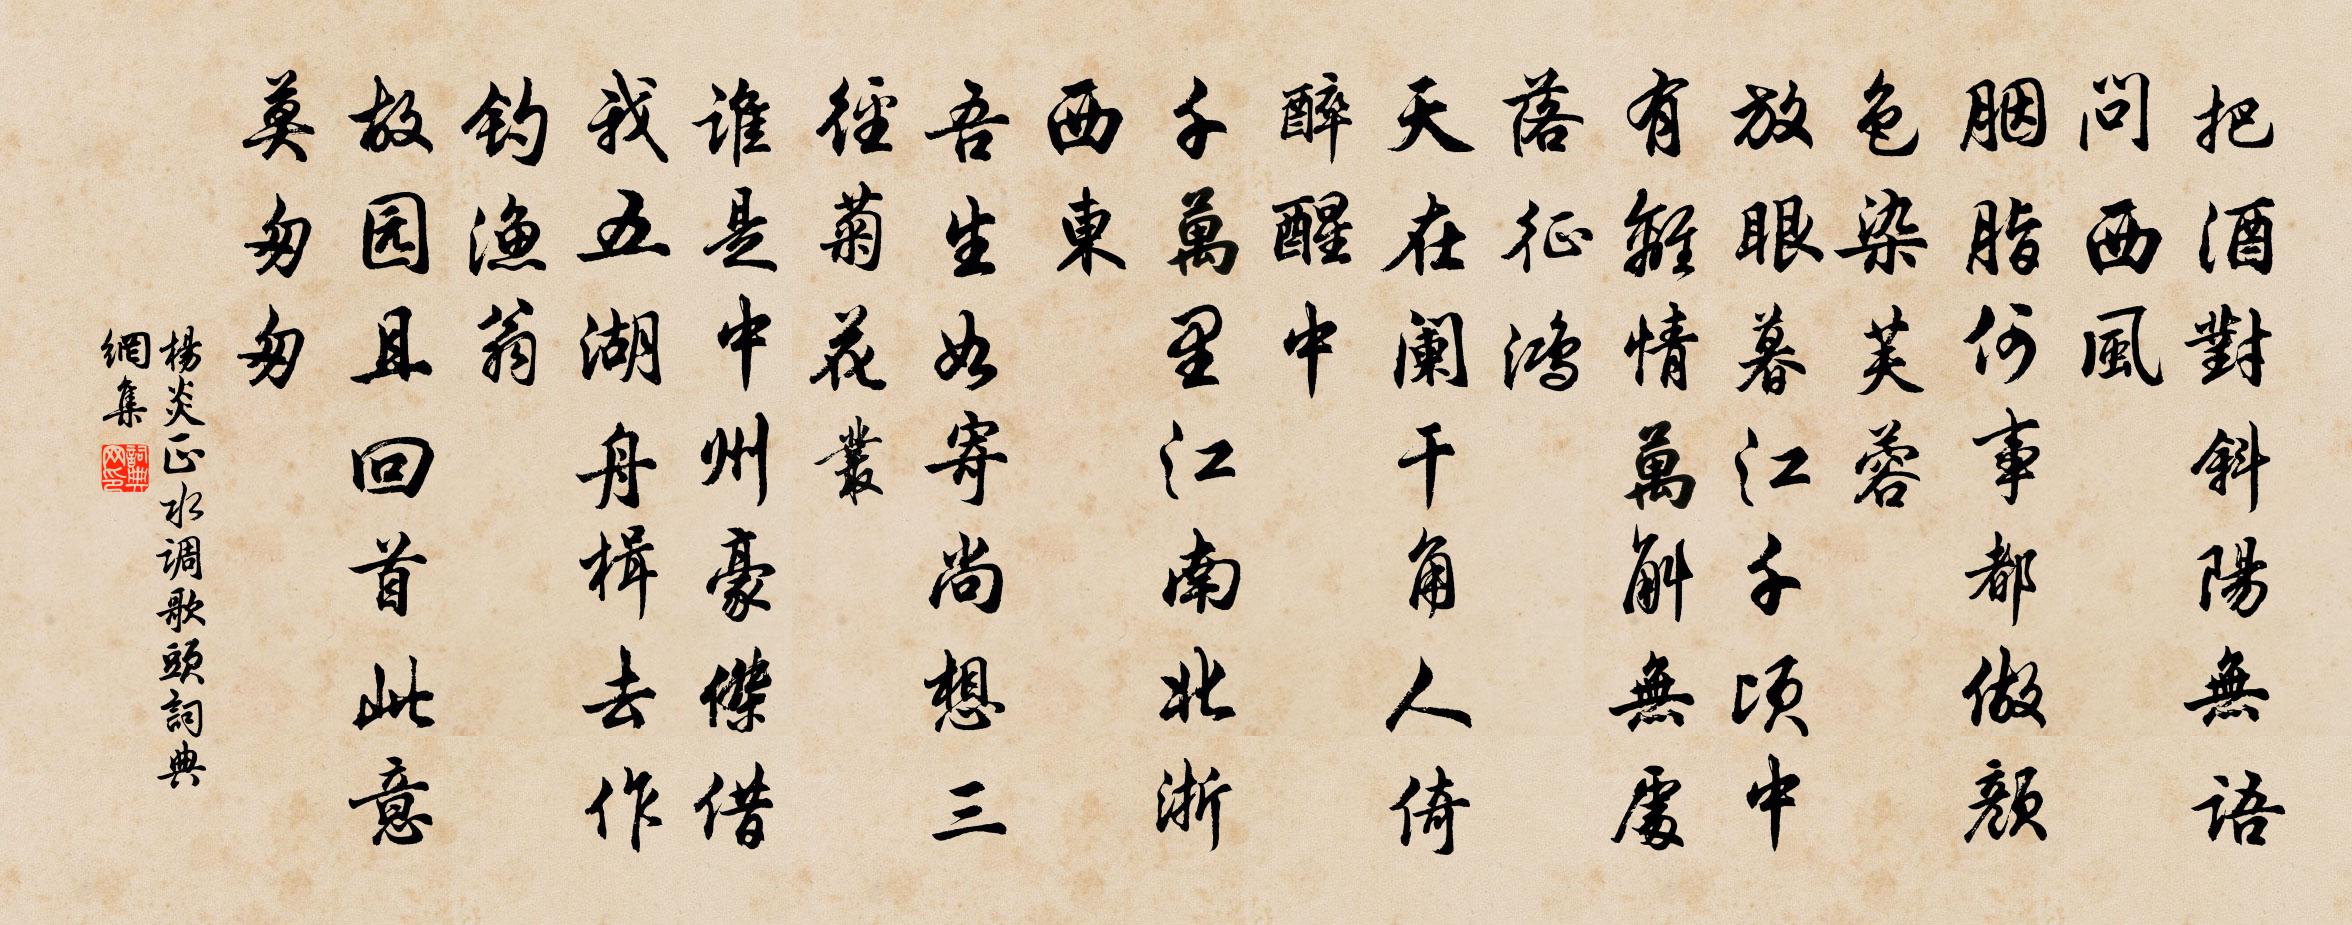 把酒對斜陽無語
問西風
胭脂何事都做顏
色染芙蓉
放眼暮江千頃中
有離情萬斛無處
落征鴻
天在闌干角人倚
醉醒中
千萬里江南北浙
西東
吾生如寄尚想三
徑菊花叢
誰是中州豪傑借
我五湖舟楫去作
钓漁翁
故园且回首此意
莫匆匆
楊炎正水调歌頭詞典
網集
詞典网印